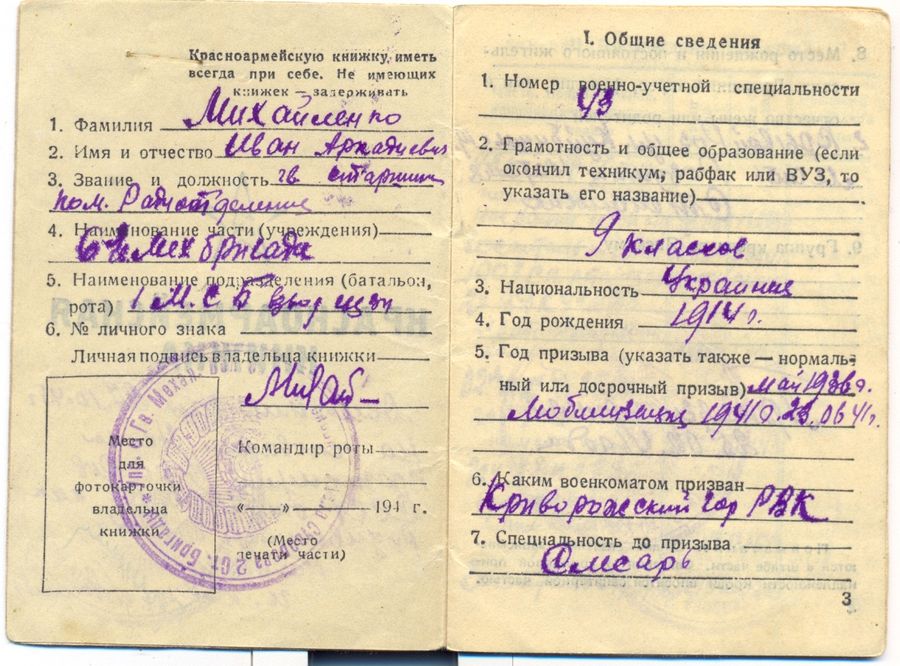 Красноармейскую книжку иметь
всегда при себе. Не имеющих
книжек — задерживать
1. Фамилия Михайленко
2. Имя и отчество Иван Аркадиевич
3. Звание и должность гв старшина
пом.
4. Наименование части (учреждения)
6 гв мех бригада
5. Наименование подразделения (батальон,
рота) 1 М.С.Б
6. № личного знака
Личная подпись владельца книжки
Место
для
фотокарточки
владельца
книжки
Командир роты
« » 194 г.
(Место
печати части)
I. Общие сведения
1. Номер военно-учетной специальности
2. Грамотность и общее образование (если
окончил техникум, рабфак или ВУЗ, то
указать его название)
9 классов
3. Национальность Украинец
4. Год рождения 1914 г.
5. Год призыва (указать также — нормаль-
ный или досрочный призыв) май 1936 г.
Мобилизация 1941 г. 23.06 41 г.
6. Каким военкоматом призван
Криворожский гор РВК
7. Специальность до призыва
Слесарь
3